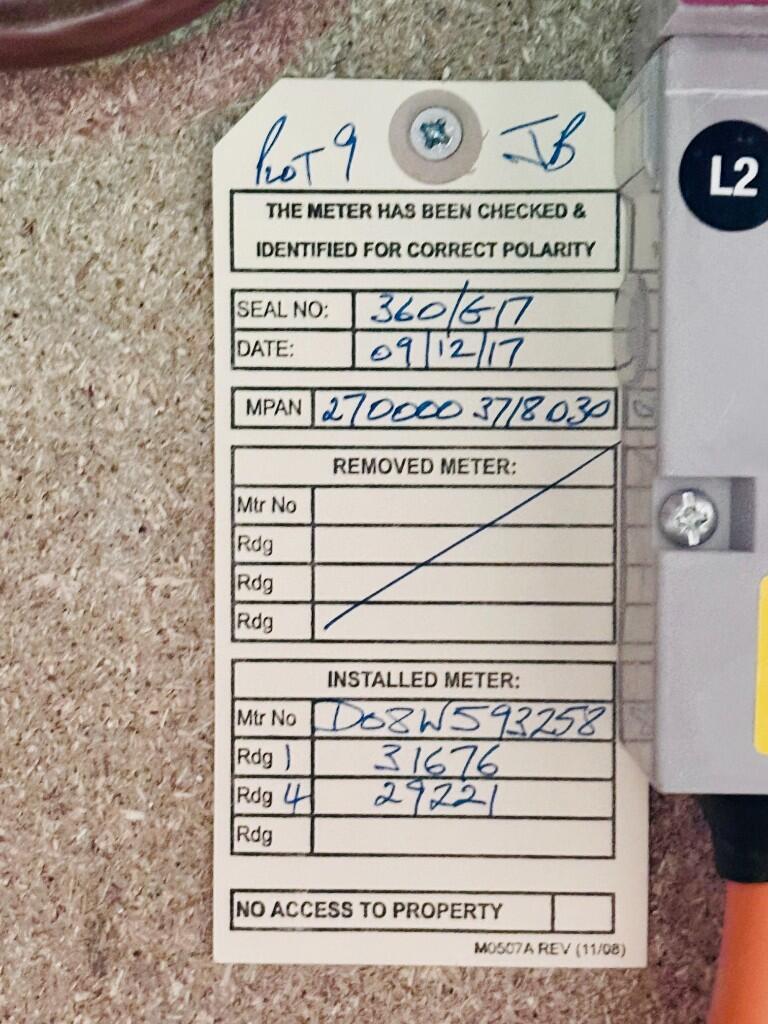 PLOT 9 JB
THE METER HAS BEEN CHECKED &
IDENTIFIED FOR CORRECT POLARITY
SEAL NO: 360/G17
DATE: 09/12/17
MPAN 270000 3718030
REMOVED METER:
Mtr No
Rdg
Rdg
Rdg
INSTALLED METER:
Mtr No D08W593258
Rdg 1 31676
Rdg 4 29221
Rdg
NO ACCESS TO PROPERTY
M0507A REV (11/08)
L2